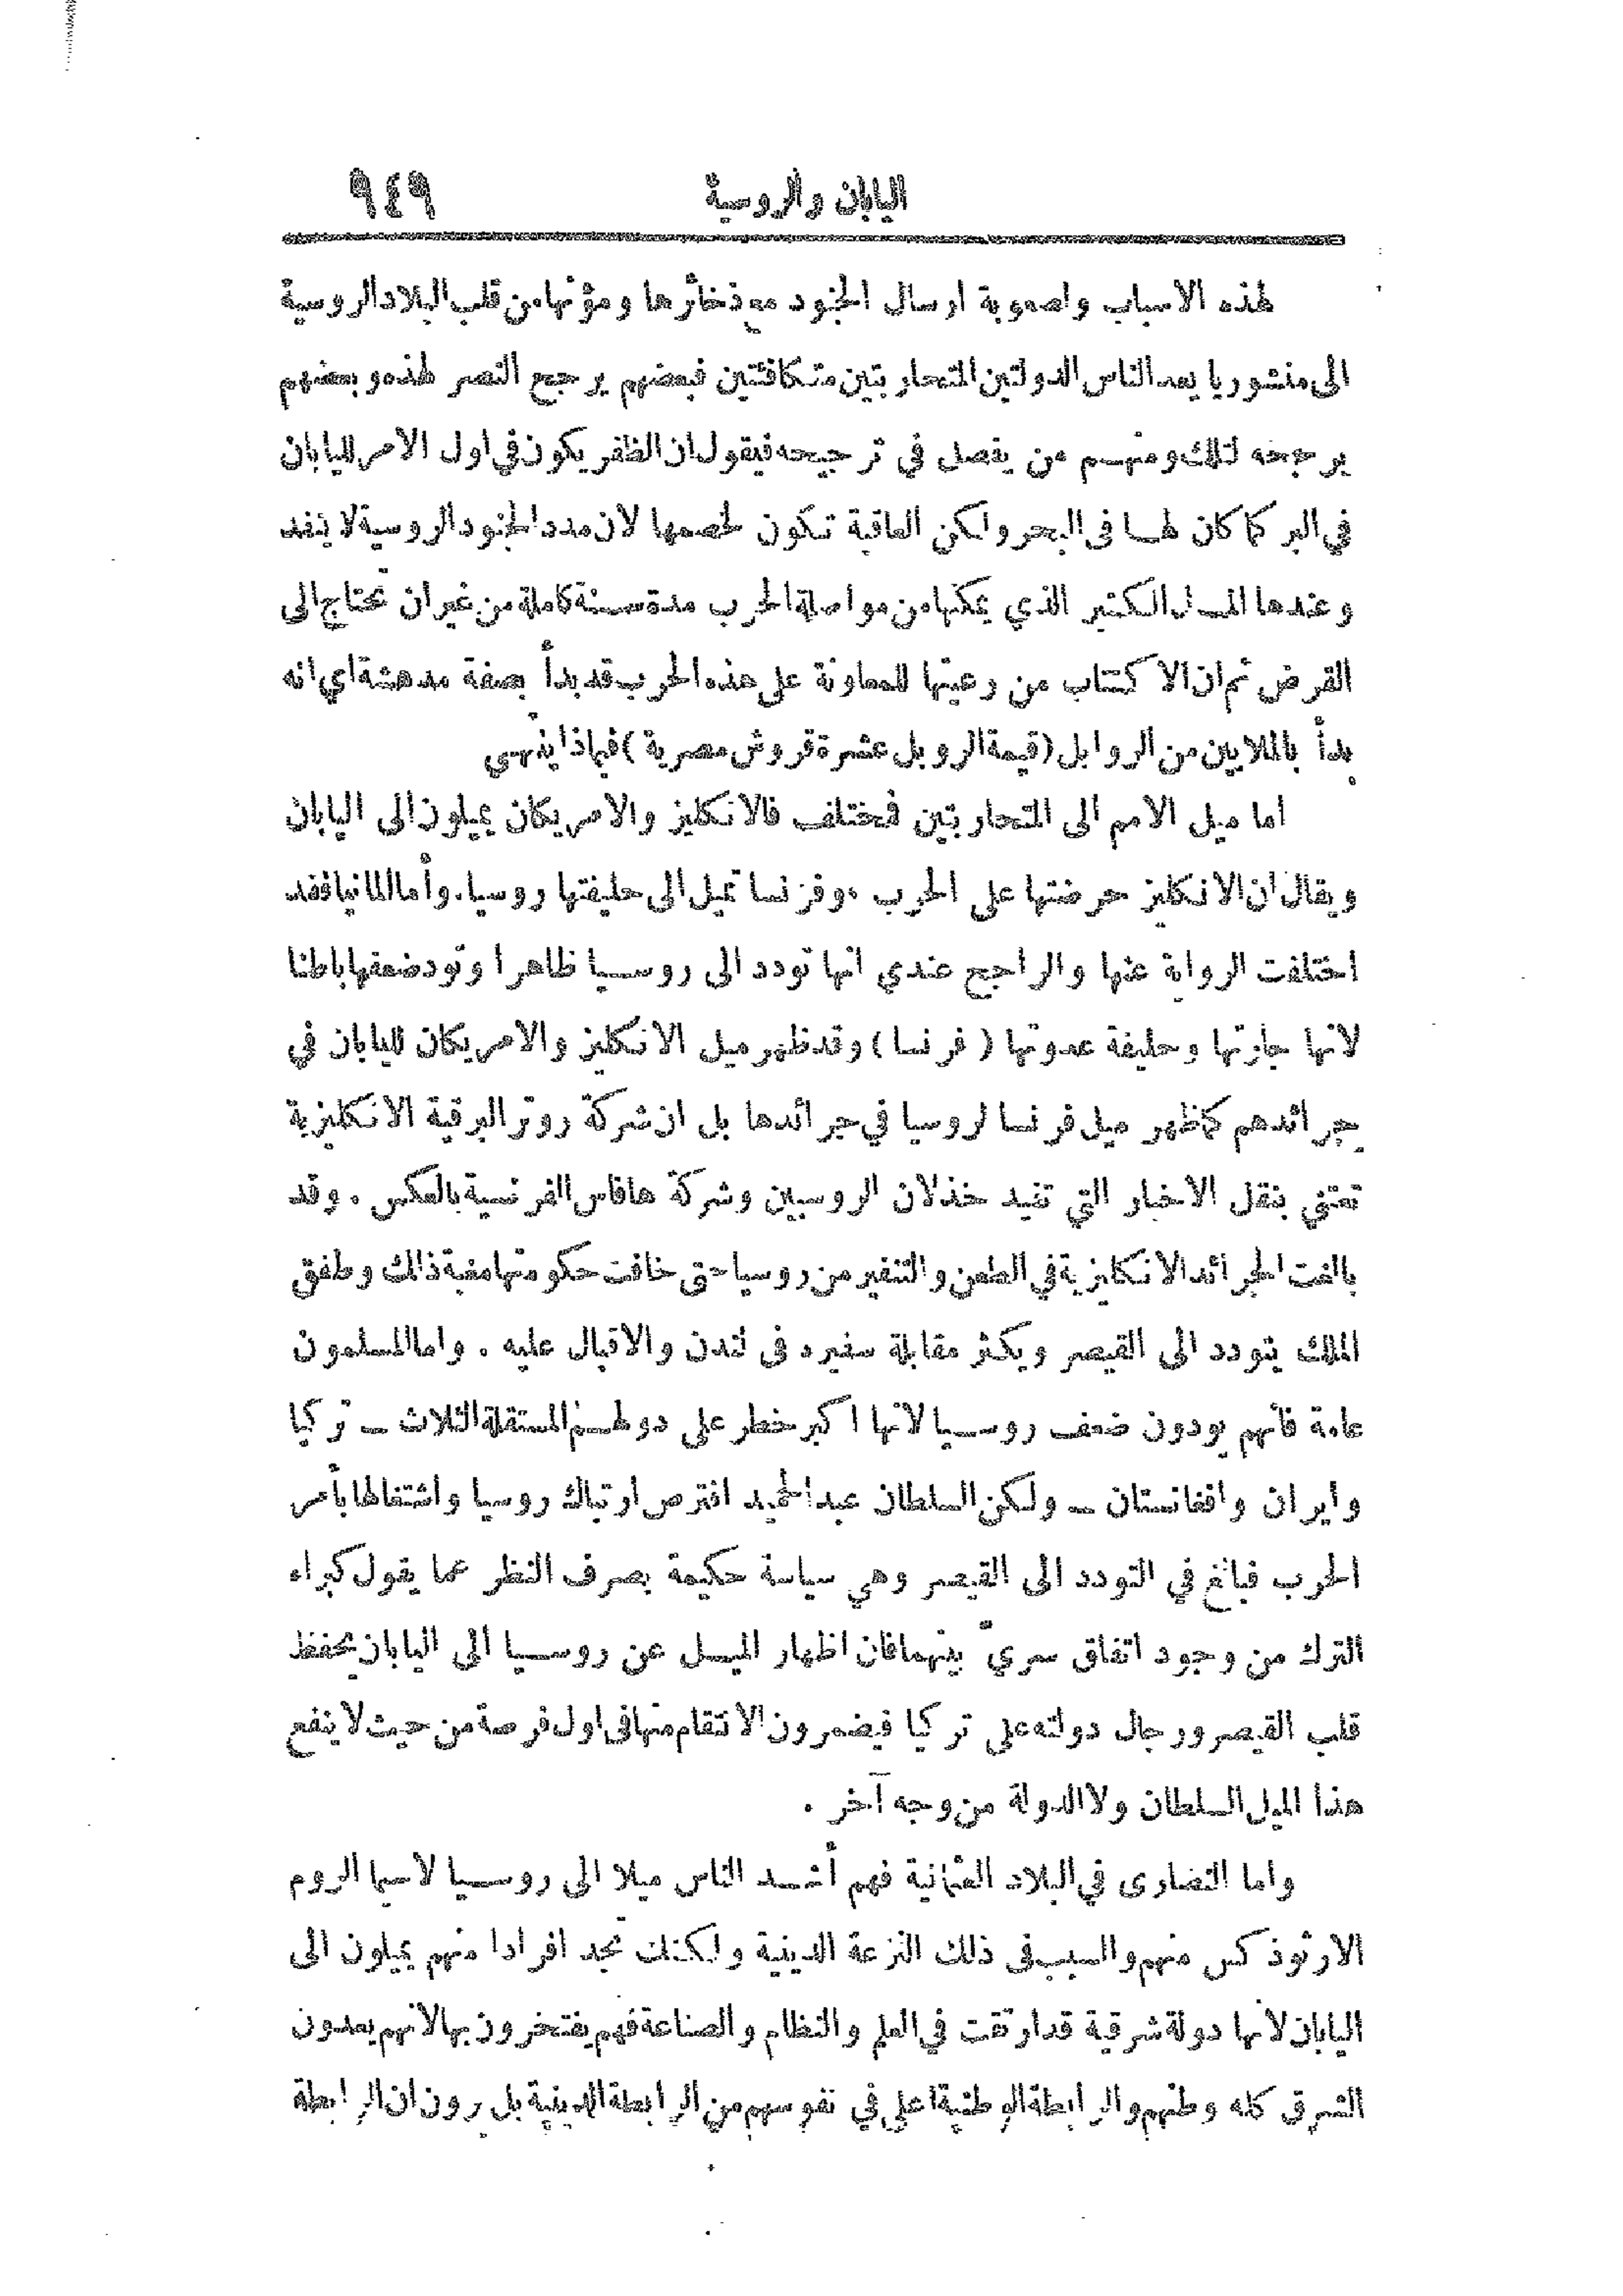 اليابان والروسية ٩٤٩
لهذه الاسباب ولصعوبة ارسال الجنود مع ذخائرها ومؤنها من قلب البلاد الروسية
الى منشوريا يعد الناس الدولتين المتحاربتين متكافئتين فبعضهم يرجح النصر لهذه وبعضهم
يرجحه لتلك ومنهم من يفصل في ترجيحه فيقول ان الظفر يكون في اول الامر لليابان
في البر كما كان لها فى البحر ولكن العاقبة تكون لخصمها لان مدد الجنود الروسية لا ينفد
وعندها المال الكثير الذي يمكنها من مواصلة الحرب مدة سنة كاملة من غير ان تحتاج الى
القرض ثم ان الاكتتاب من رعيتها للمعاونة على هذه الحرب قد بدأ بصفة مدهشة اي انه
بدأ بالملايين من الروابل (قيمة الروبل عشرة قروش مصرية) فبماذا ينتهي
اما ميل الامم الى المتحاربتين فمختلف فالانكليز والامريكان يميلون الى اليابان
ويقال ان الانكليز حرضتها على الحرب ، وفرنسا تميل الى حليفتها روسيا. وأما المانيا فقد
اختلفت الرواية عنها والراجح عندي انها تودد الى روسيا ظاهرا وتود ضعفها باطنا
لانها جارتها وحليفة عدوتها ( فرنسا ) وقد ظهر ميل الانكليز والامريكان لليابان في
جرائدهم كما ظهر ميل فرنسا لروسيا في جرائدها بل ان شركة روتر البرقية الانكليزية
تعتني بنقل الاخبار التي تفيد خذلان الروسيين وشركة هافاس الفرنسية بالعكس . وقد
بالغت الجرائد الانكليزية في الطعن والتنفير من روسيا حتى خافت حكومتها مغبة ذلك وطفق
الملك يتودد الى القيصر ويكثر مقابلة سفيره فى لندن والاقبال عليه . واما المسلمون
عامة فانهم يودون ضعف روسيا لانها اكبر خطر على دولهم المستقلة الثلاث ــ تركيا
وايران وافغانستان ــ ولكن السلطان عبد الحميد افترص ارتباك روسيا واشتغالها بأمر
الحرب فبالغ في التودد الى القيصر وهي سياسة حكيمة بصرف النظر عما يقول كبراء
الترك من وجود اتفاق سريّ بينهما فان اظهار الميل عن روسيا الى اليابان يحفظ
قلب القيصر ورجال دولته على تركيا فيضمرون الانتقام منها فى اول فرصة من حيث لا ينفع
هذا الميل السلطان ولا الدولة من وجه آخر .
واما النصارى في البلاد العثمانية فهم أشد الناس ميلا الى روسيا لاسيما الروم
الارثوذكس منهم والسبب فى ذلك النزعة الدينية ولكنك تجد افرادا منهم يميلون الى
اليابان لانها دولة شرقية قد ارتقت في العلم والنظام والصناعة فهم يفتخرون بها لانهم يعدون
الشرق كله وطنهم والرابطة الوطنية اعلى في نفوسهم من الرابطة الدينية بل يرون ان الرابطة